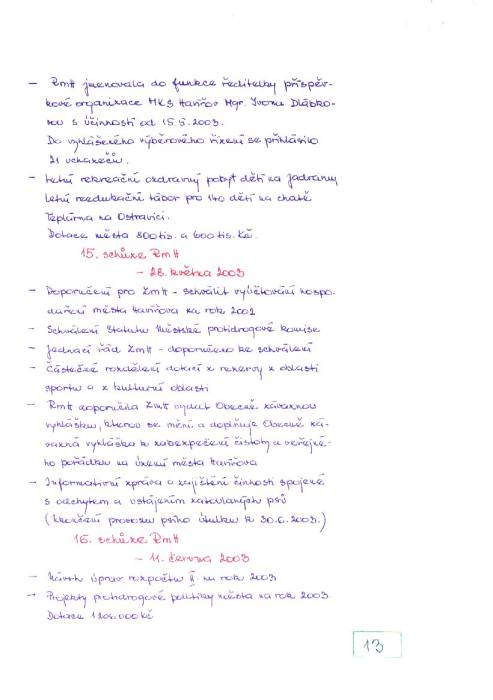 - RmH jmenovala do funkce ředitelky příspěv-
kové organizace MKS Havířov Mgr. Ivonu Dlábko-
vou s účinností od 15.5.2003.
Do vyhlášeného výběrového řízení se přihlásilo
21 uchazečů.
- Letní rekreační ozdravný pobyt dětí na Jadranu,
letní reedukační tábor pro 140 dětí na chatě
Teplárna na Ostravici.
Dotace města 800 tis. a 600 tis. Kč.
15. schůze RmH
- 28. května 2003
- Doporučení pro ZmH - schválit vyúčtování hospo-
daření města Havířova za rok 2002
- Schválení Statutu Městské protidrogové komise
- Jednací řád ZmH - doporučeno ke schválení
- Částečné rozdělení dotací z rezervy z oblasti
sportu a z kulturní oblasti
- RmH doporučila ZmH vydat Obecně závaznou
vyhlášku, kterou se mění a doplňuje Obecně zá-
vazná vyhláška k zabezpečení čistoty a veřejné-
ho pořádku na území města Havířova
- Informativní zpráva o zajištění činnosti spojené
s odchytem a ustájením zatoulaných psů
(Ukončení provozu psího útulku k 30.6.2003.)
16. schůze RmH
- 11. června 2003
- Návrh úprav rozpočtu II. na rok 2003
- Projekty protidrogové politiky města na rok 2003.
Dotace 1 206 000 Kč
13